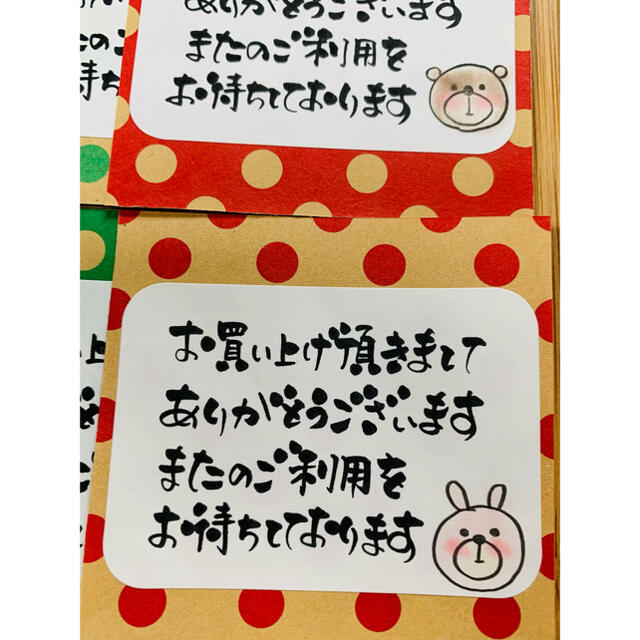 ありがとうございます
またのご利用を
お待ちしております
お買い上げ頂きまして
ありがとうございます
またのご利用を
お待ちしております